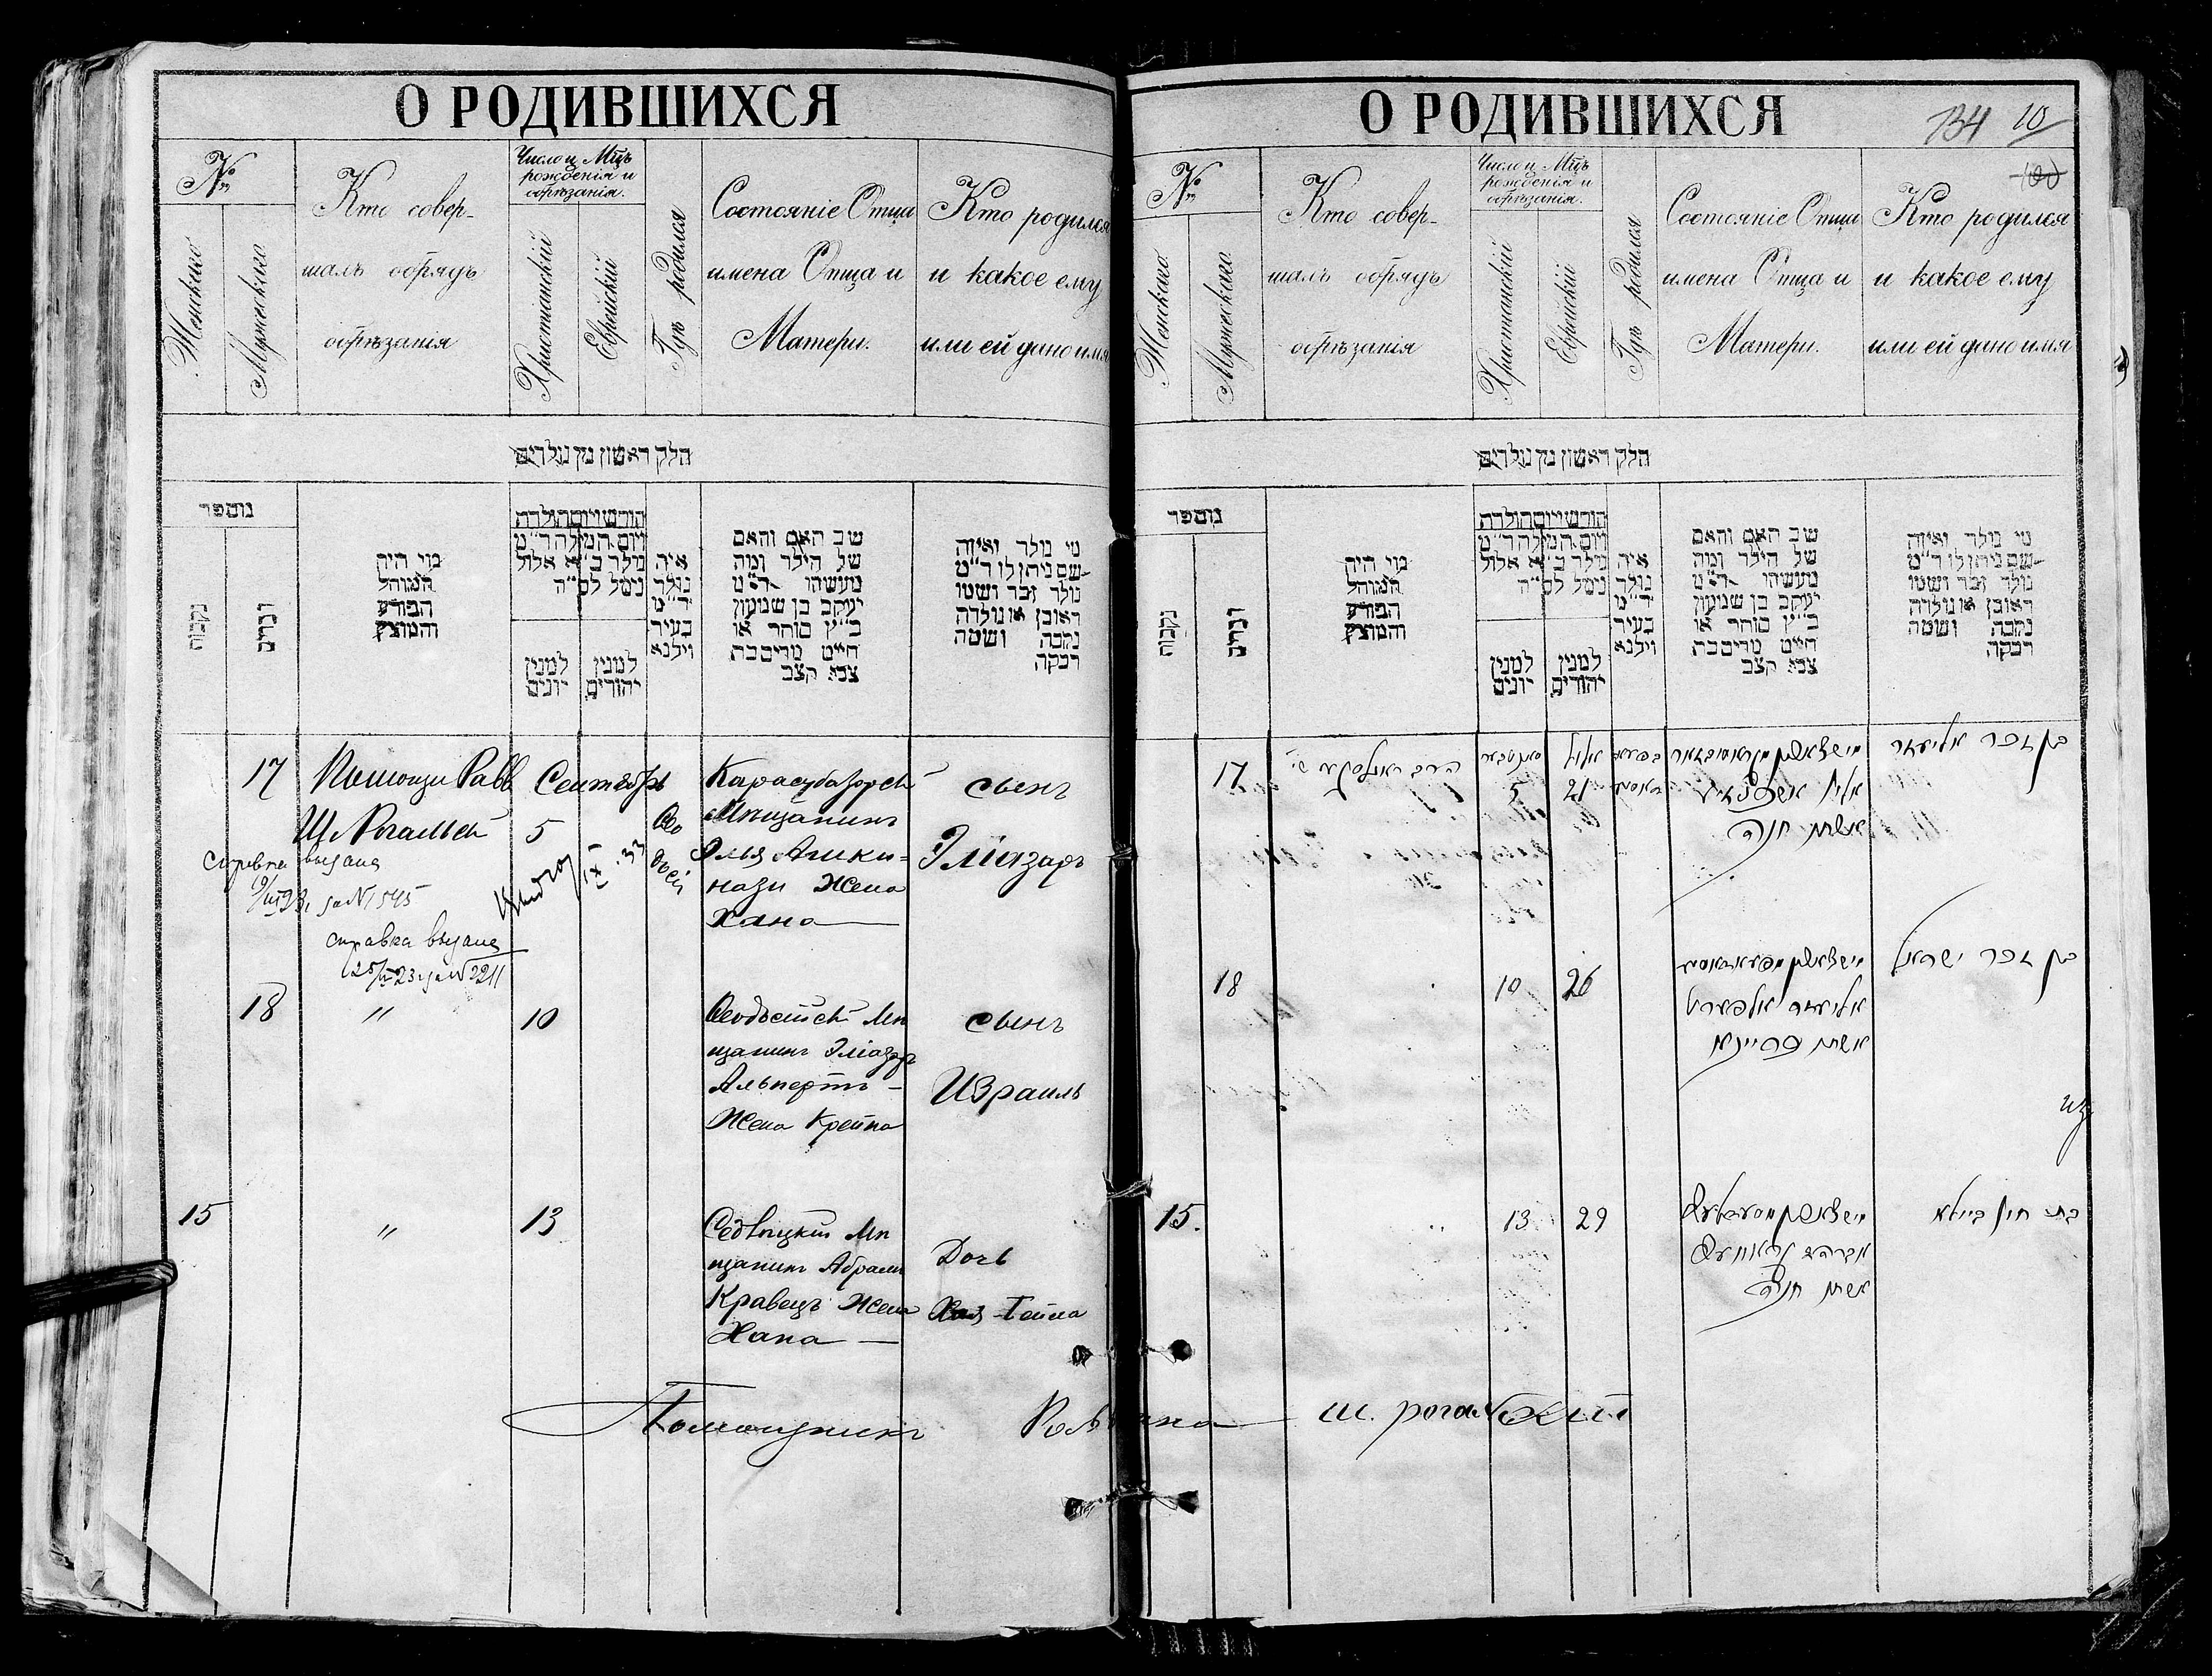 О РОДИВШИХСЯ
№
Женскаго
Мужескаго
Кто совер-
шалъ обрядъ
обрѣзанія
Число и Мцъ
рожденія и
обрѣзанія.
Христіанскій
Еврейскій
Гдѣ родился
Состояніе Отца
имена Отца и
Матери.
Кто родился
и какое ему
или ей дано имя
חלק ראשון מן נולדים
מספר
נקבות
זכרים
מי היה
המוהל
הפורע
והמוצץ
חודש ויום הולדת
ויום המילה ד"מ
נולד ב"א אלול
נימל לס"ה
למנין
יונים
למנין
יהודים
איה
נולד
ד"מ
בעיר
וילנא
שב האם והאם
של הילד ומה
מעשיהו ד"מ
יעקב בן שמעון
כ"ץ סוחר או
חייט מרים בת
צבא קצב
מי נולד ואיזה
שם ניתן לו ד"מ
נולד זכר ושמו
ראובן או נולדה
נקבה ושמה
רבקה
17
Помощн Равв
Ш Рогальск
Сентябрь
5
Ѳео
досій
Карасубазорскі
Мѣщанинъ
Эля Ашки-
нази Жена
Хана
сынъ
Эліазаръ
справка выдана
за № 1545
справка выдана
25/IV 23 г за № 2211
18
"
10
Ѳеодосійскі Мѣ
щанинъ Эліазаръ
Альпертъ -
Жена Крейна
сынъ
Израиль
15
"
13
Мѣ
щанинъ Абрамъ
Кравецъ Жена
Хана
Дочь
Хая-Бейла
Помощникъ Раввина Ш. Рогальскій
О РОДИВШИХСЯ
134 10
100
№
Женскаго
Мужескаго
Кто совер-
шалъ обрядъ
обрѣзанія
Число и Мцъ
рожденія и
обрѣзанія.
Христіанскій
Еврейскій
Гдѣ родился
Состояніе Отца
имена Отца и
Матери.
Кто родился
и какое ему
или ей дано имя
חלק ראשון מן נולדים
מספר
נקבות
זכרים
מי היה
המוהל
הפורע
והמוצץ
חודש ויום הולדת
ויום המילה ד"מ
נולד ב"א אלול
נימל לס"ה
למנין
יונים
למנין
יהודים
איה
נולד
ד"מ
בעיר
וילנא
שב האם והאם
של הילד ומה
מעשיהו ד"מ
יעקב בן שמעון
כ"ץ סוחר או
חייט מרים בת
צבא קצב
מי נולד ואיזה
שם ניתן לו ד"מ
נולד זכר ושמו
ראובן או נולדה
נקבה ושמה
רבקה
17
הרב
5
אלול
21
אלי' אשכנזי
אשתו חנה
בן זכר אליעזר
18
10
26
אליעזר אלפערט
אשתו קריינא
בן זכר ישראל
15.
13
29
אברהם קראוועץ
אשתו חנה
בת חי' ביילא